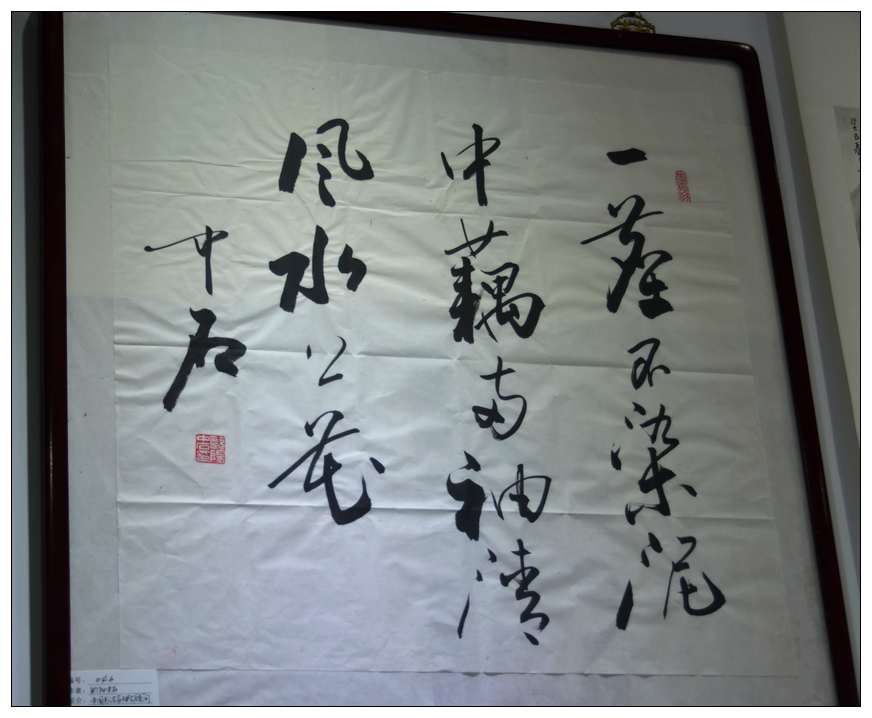 一尘不染泥
中藕两袖清
风水上花
中石